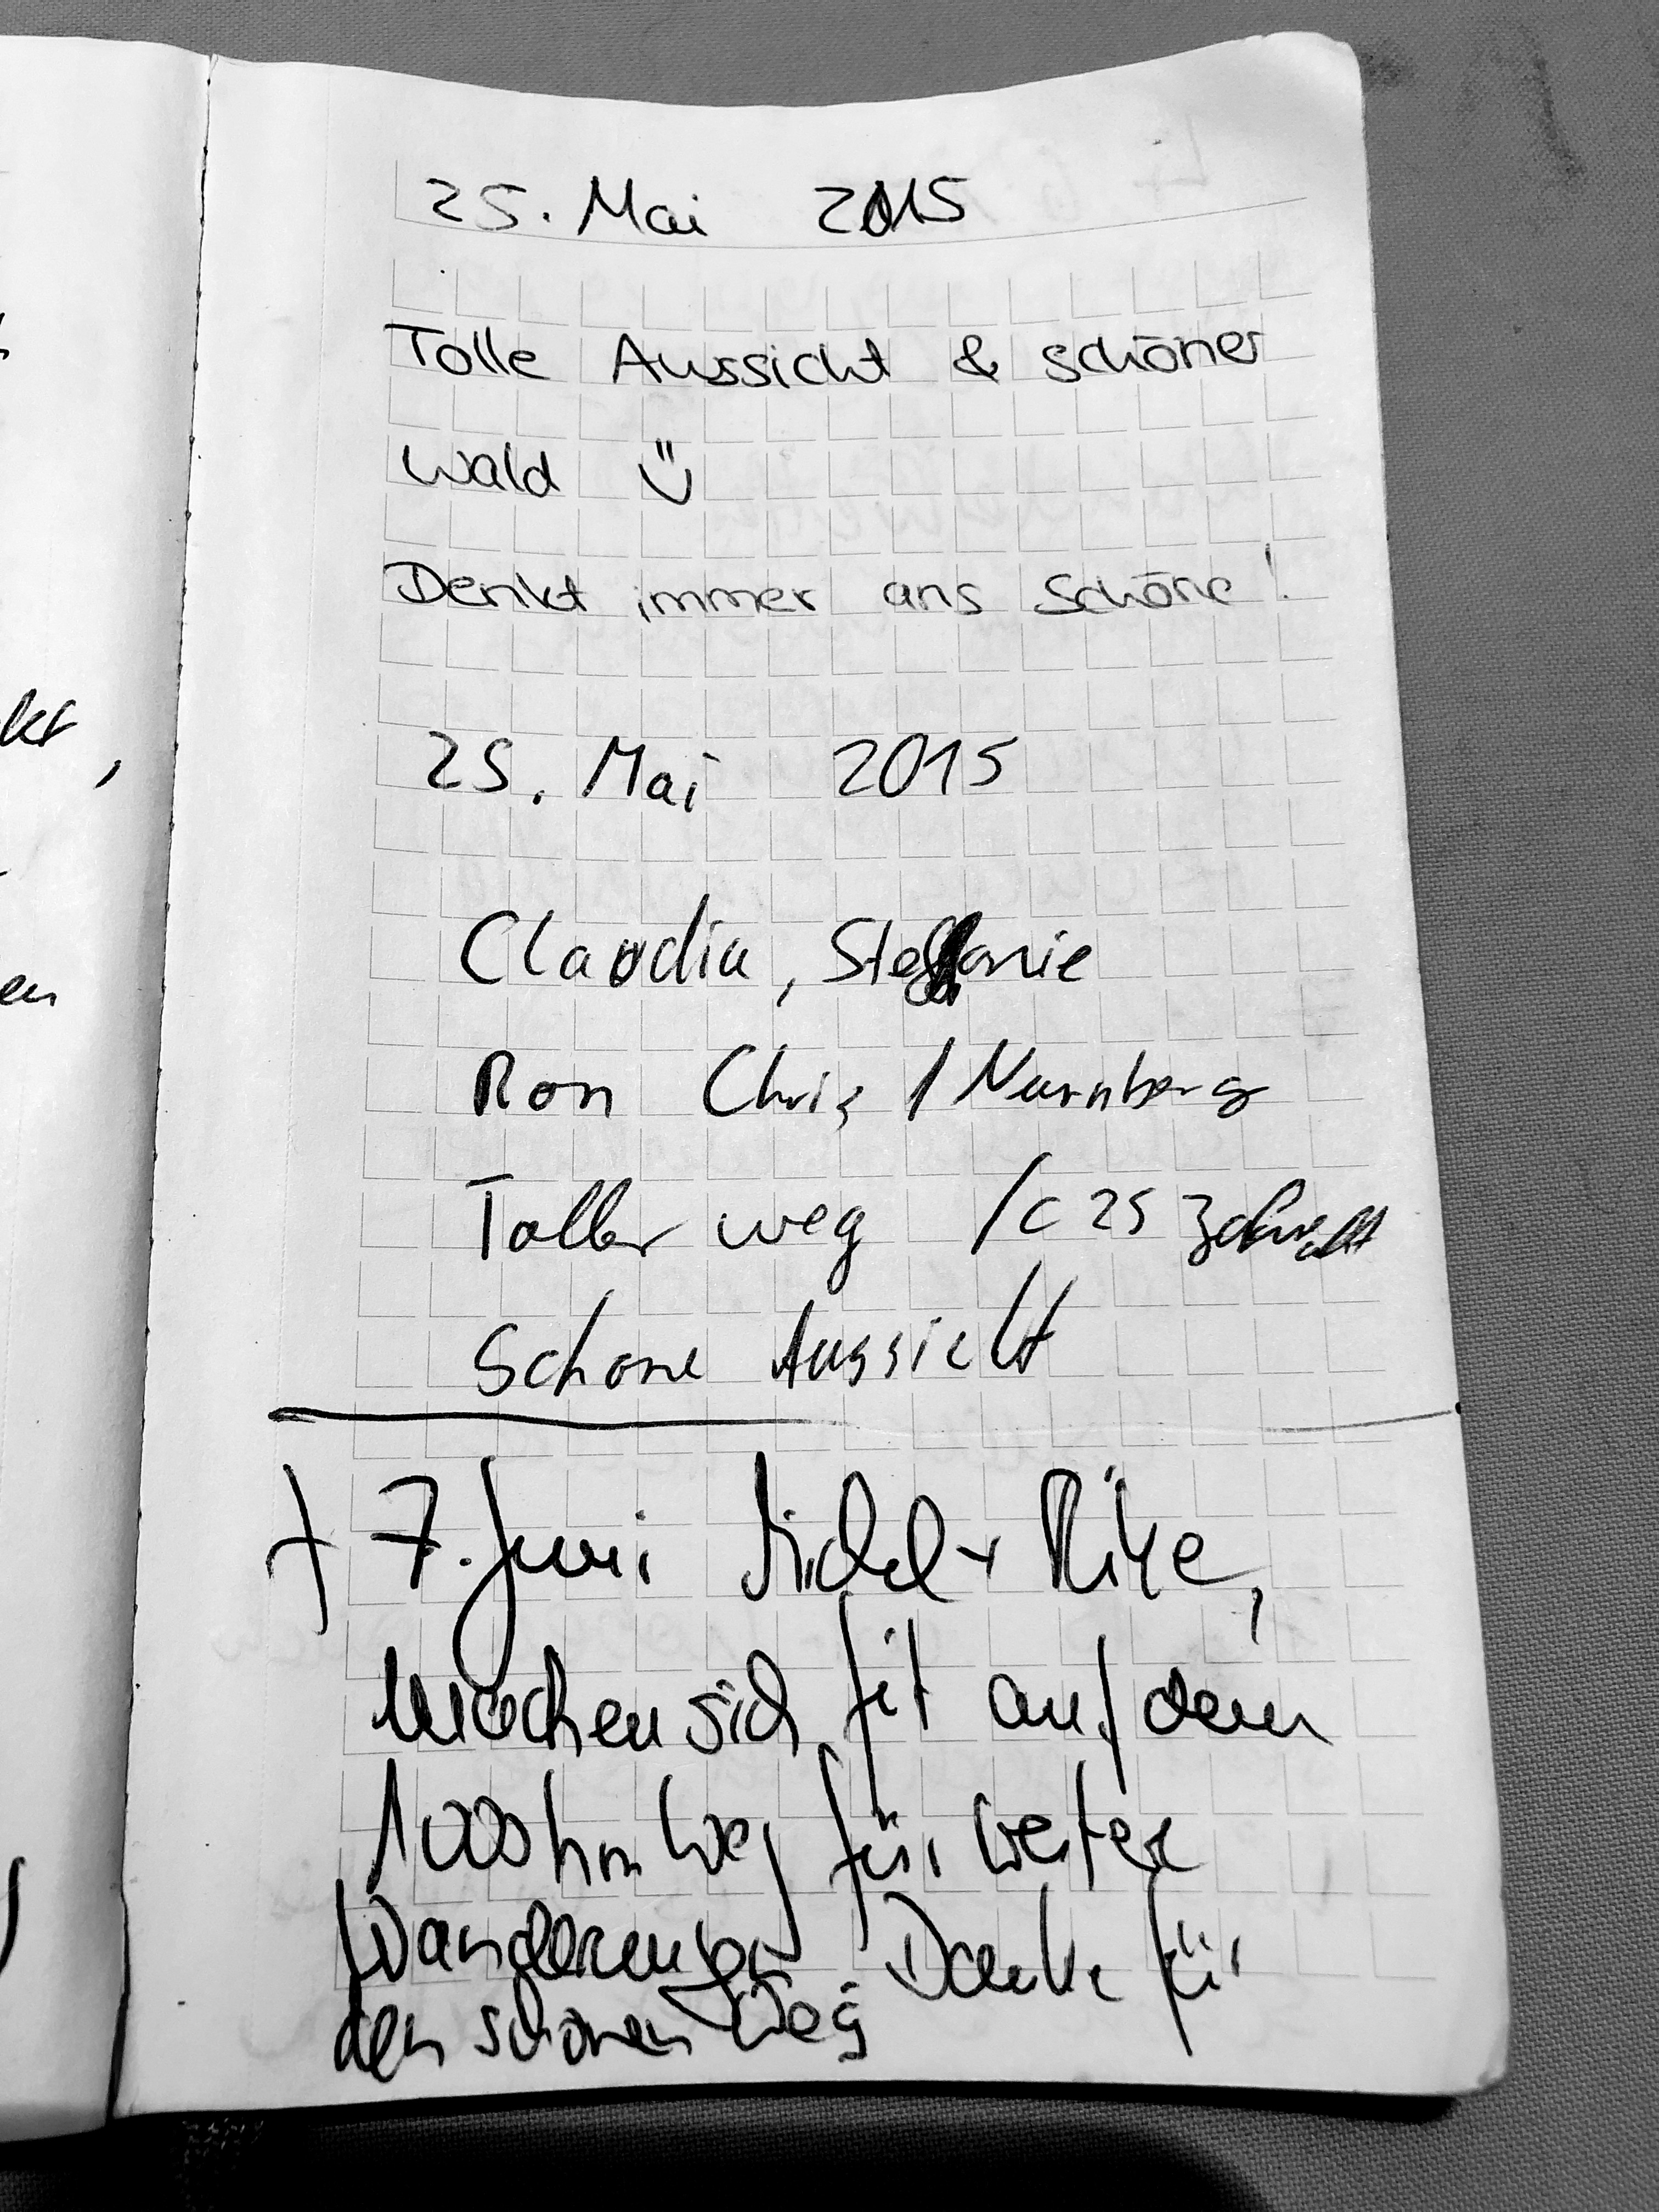 25. Mai 2015
Tolle Aussicht & schöner
Wald ü
Denkt immer ans Schöne!
25. Mai 2015
Claudia, Stefanie
Ron Chris / Nurnberg
Toller weg / C 25
Schone Aussicht
7. Juni Michel + Rike,
machen sich fit auf dem
1000hm Weg für weitere
Wanderungen Danke für
den schönen Weg
kt,
en